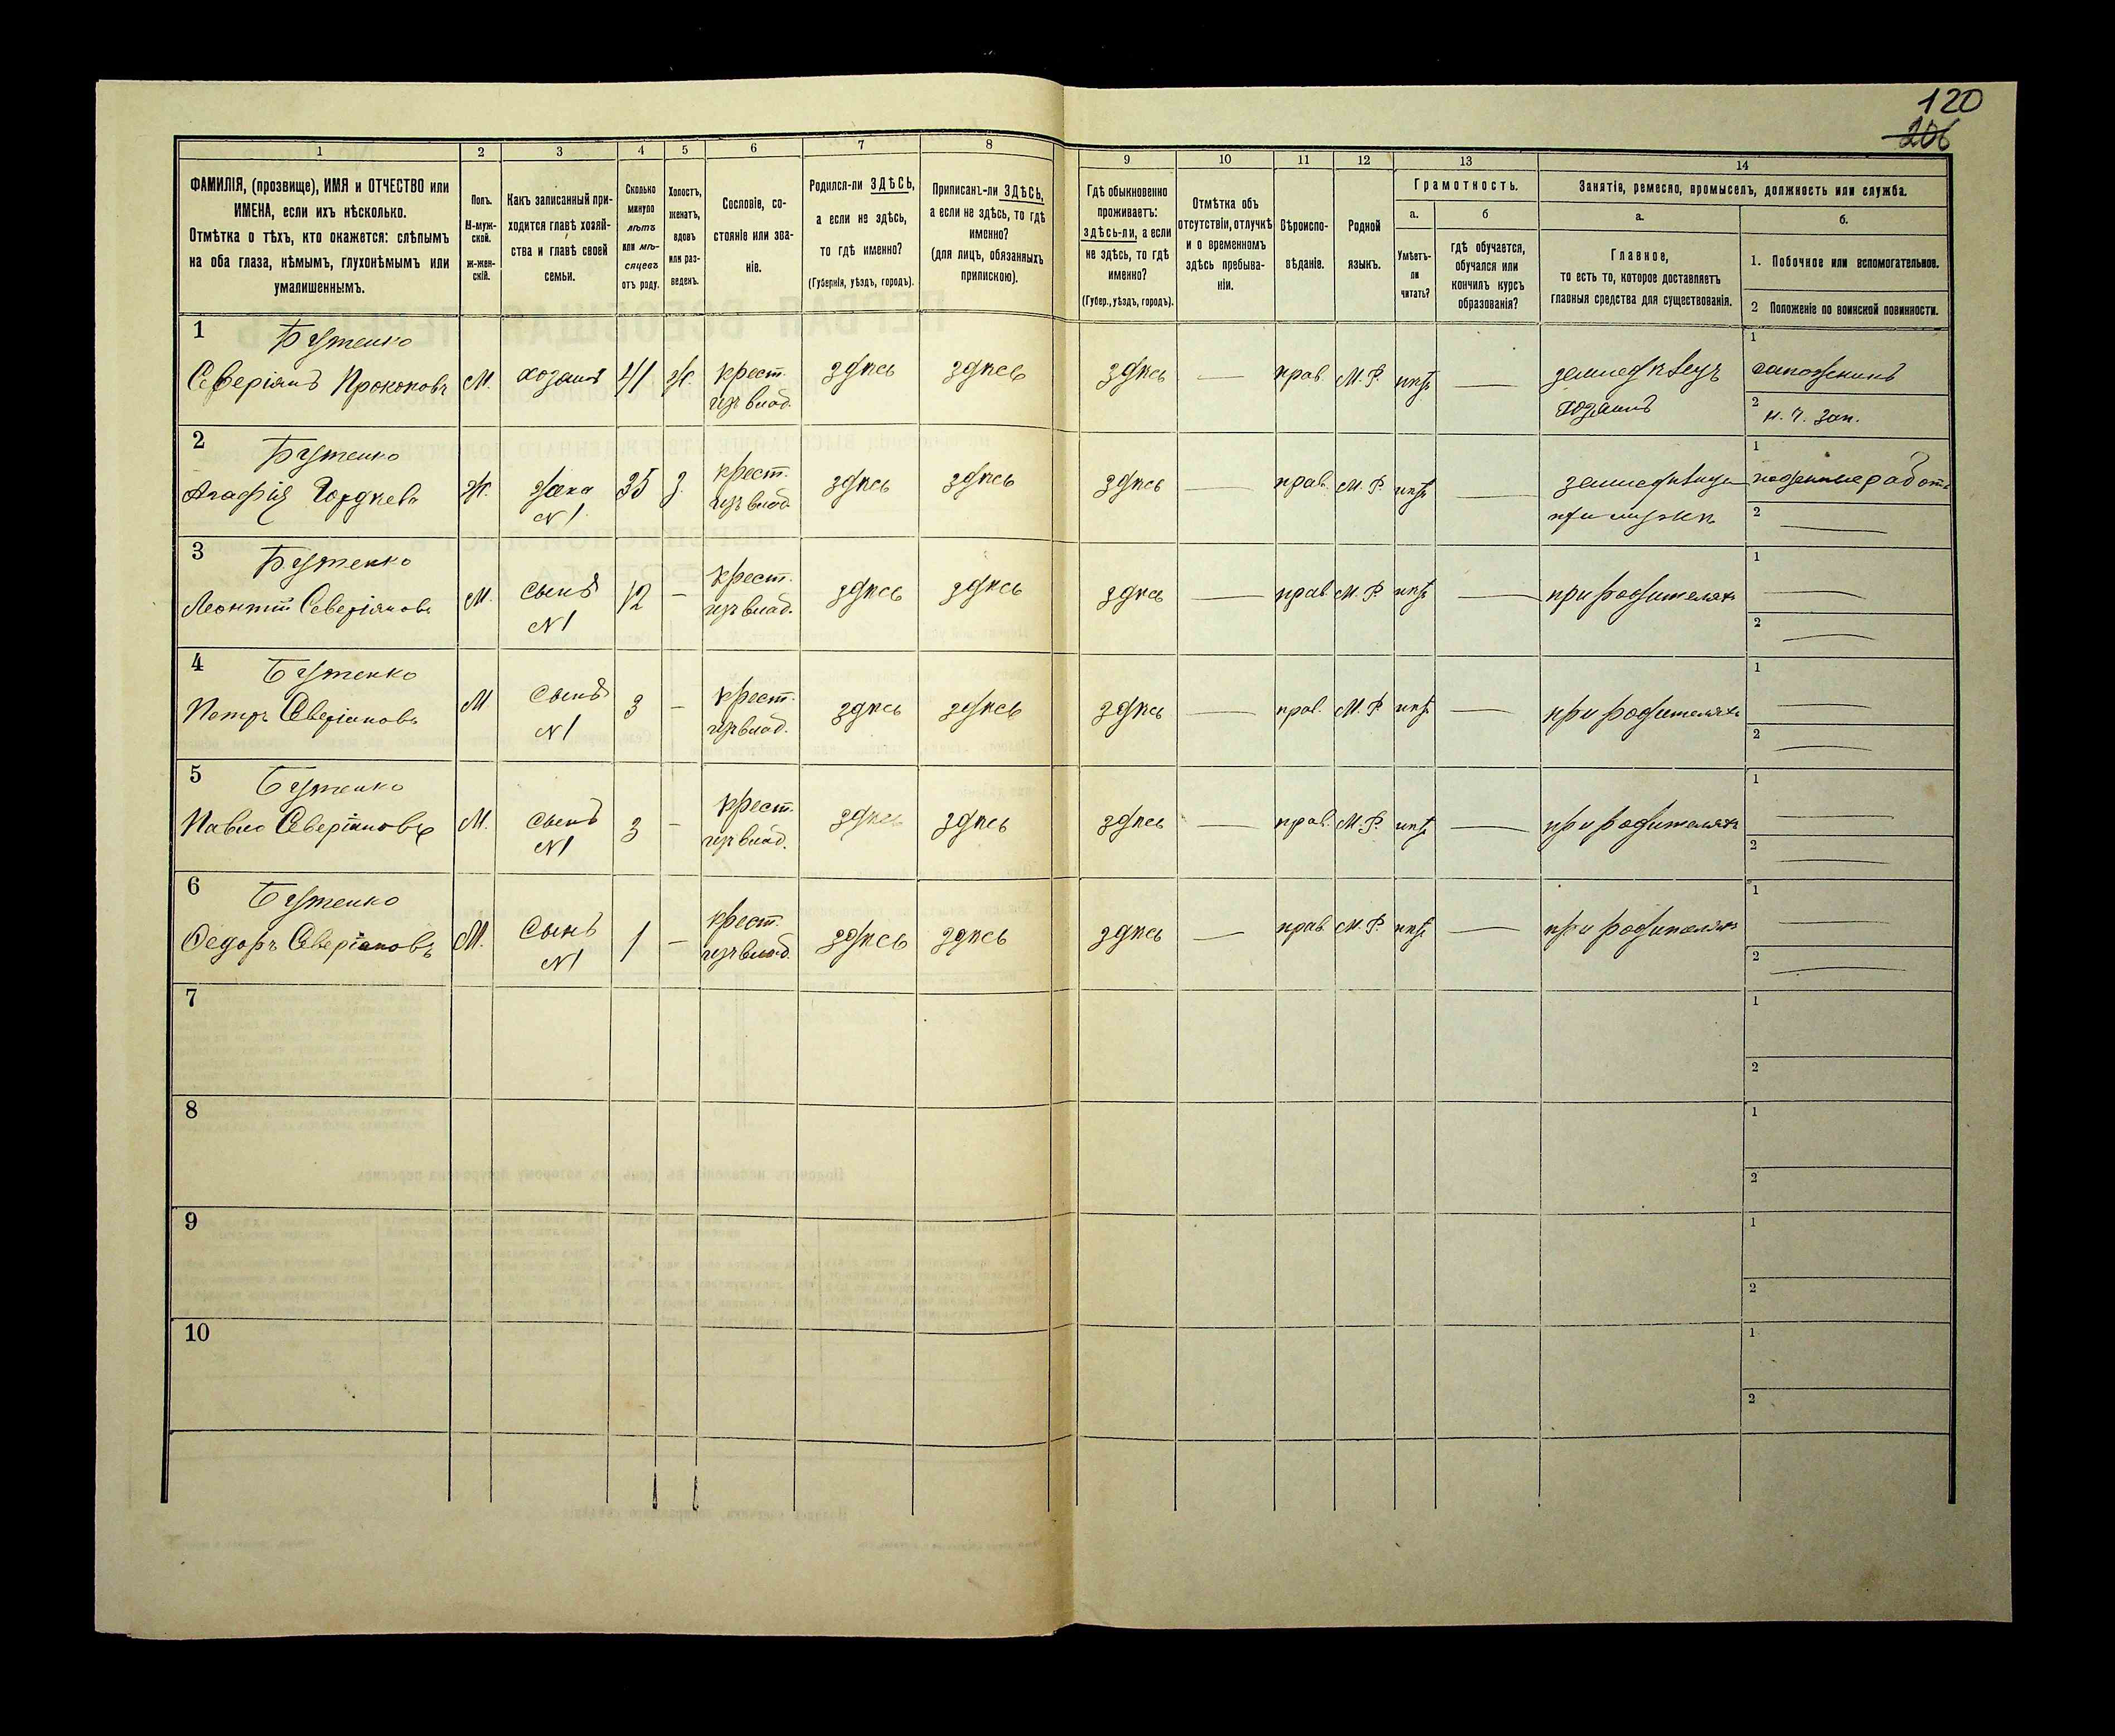 120
206
1
2
3
4
5
6
7
8
9
10
11
12
13
14
ФАМИЛІЯ, (прозвище), ИМЯ и ОТЧЕСТВО или
ИМЕНА, если ихъ нѣсколько.
Отмѣтка о тѣхъ, кто окажется: слѣпымъ
на оба глаза, нѣмымъ, глухонѣмымъ или
умалишеннымъ.
Полъ.
М-муж-
ской.
ж-жен-
скій.
Какъ записанный при-
ходится главѣ хозяй-
ства и главѣ своей
семьи.
Сколько
минуло
лѣтъ
или мѣ-
сяцевъ
отъ роду.
Холостъ,
женатъ,
вдовъ
или раз-
веденъ.
Сословіе, со-
стояніе или зва-
ніе.
Родился-ли ЗДѢСЬ,
а если не здѣсь,
то гдѣ именно?
(Губернія, уѣздъ, городъ).
Приписанъ-ли ЗДѢСЬ,
а если не здѣсь, то гдѣ
именно?
(для лицъ, обязанныхъ
припискою).
Гдѣ обыкновенно
проживаетъ:
здѣсь-ли, а если
не здѣсь, то гдѣ
именно?
(Губер., уѣздъ, городъ).
Отмѣтка объ
отсутствіи, отлучкѣ
и о временномъ
здѣсь пребыва-
ніи.
Вѣроиспо-
вѣданіе.
Родной
языкъ.
Грамотность.
а.
Умѣетъ-
ли
читать?
б
гдѣ обучается,
обучался или
кончилъ курсъ
образованія?
Занятіе, ремесло, промыселъ, должность или служба.
а.
Главное,
то есть то, которое доставляетъ
главныя средства для существованія.
б.
1. Побочное или вспомогательное.
2 Положеніе по воинской повинности.
1 Бутенко
Северіянъ Прокоповъ М. хозяинъ 41 ж. крест. изъ влад. здѣсь здѣсь здѣсь — прав. М. Р. нѣтъ — земледѣлецъ хозяинъ 1 сапожникъ
2 н. ч. зап.
2 Бутенко
Агафія Гордѣева ж. жена N 1 35 з. крест. изъ влад. здѣсь здѣсь здѣсь — прав. М. Р. нѣтъ — земледѣлица при мужѣ 1
2 —
3 Бутенко
Леонтій Северіяновъ М. сынъ N 1 12 — крест. изъ влад. здѣсь здѣсь здѣсь — прав. М. Р. нѣтъ — при родителяхъ 1 —
2 —
4 Бутенко
Петръ Северіяновъ М сынъ N 1 3 — крест. изъ влад. здѣсь здѣсь здѣсь — прав. М. Р. нѣтъ — при родителяхъ 1 —
2 —
5 Бутенко
Павло Северіяновъ М. сынъ N 1 3 — крест. изъ влад. здѣсь здѣсь здѣсь — прав. М. Р. нѣтъ — при родителяхъ 1 —
2 —
6 Бутенко
Ѳедоръ Северіановъ М. сынъ N 1 1 — крест. изъ влад. здѣсь здѣсь здѣсь — прав. М. Р. нѣтъ — при родителяхъ 1 —
2 —
7 1
2
8 1
2
9 1
2
10 1
2